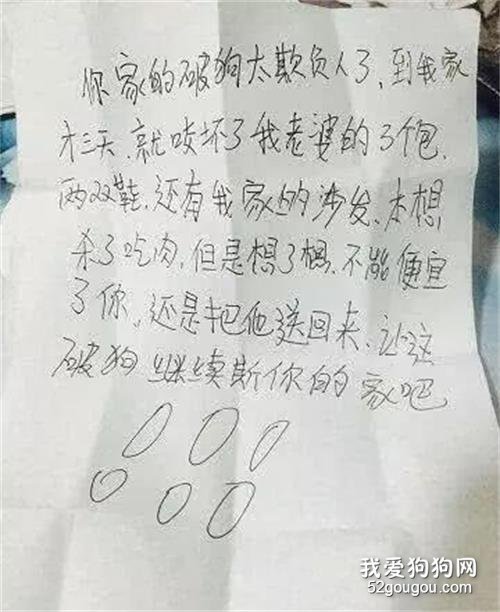 你家的破狗太欺负人了、到我家
才三天、就咬坏了我老婆的3个包、
两双鞋、还有我家的沙发、本想
杀了吃肉、但是想了想、不能便宜
了你、还是把他送回来、让这
破狗继续斯你的家吧
我爱狗狗网
52gougou.com